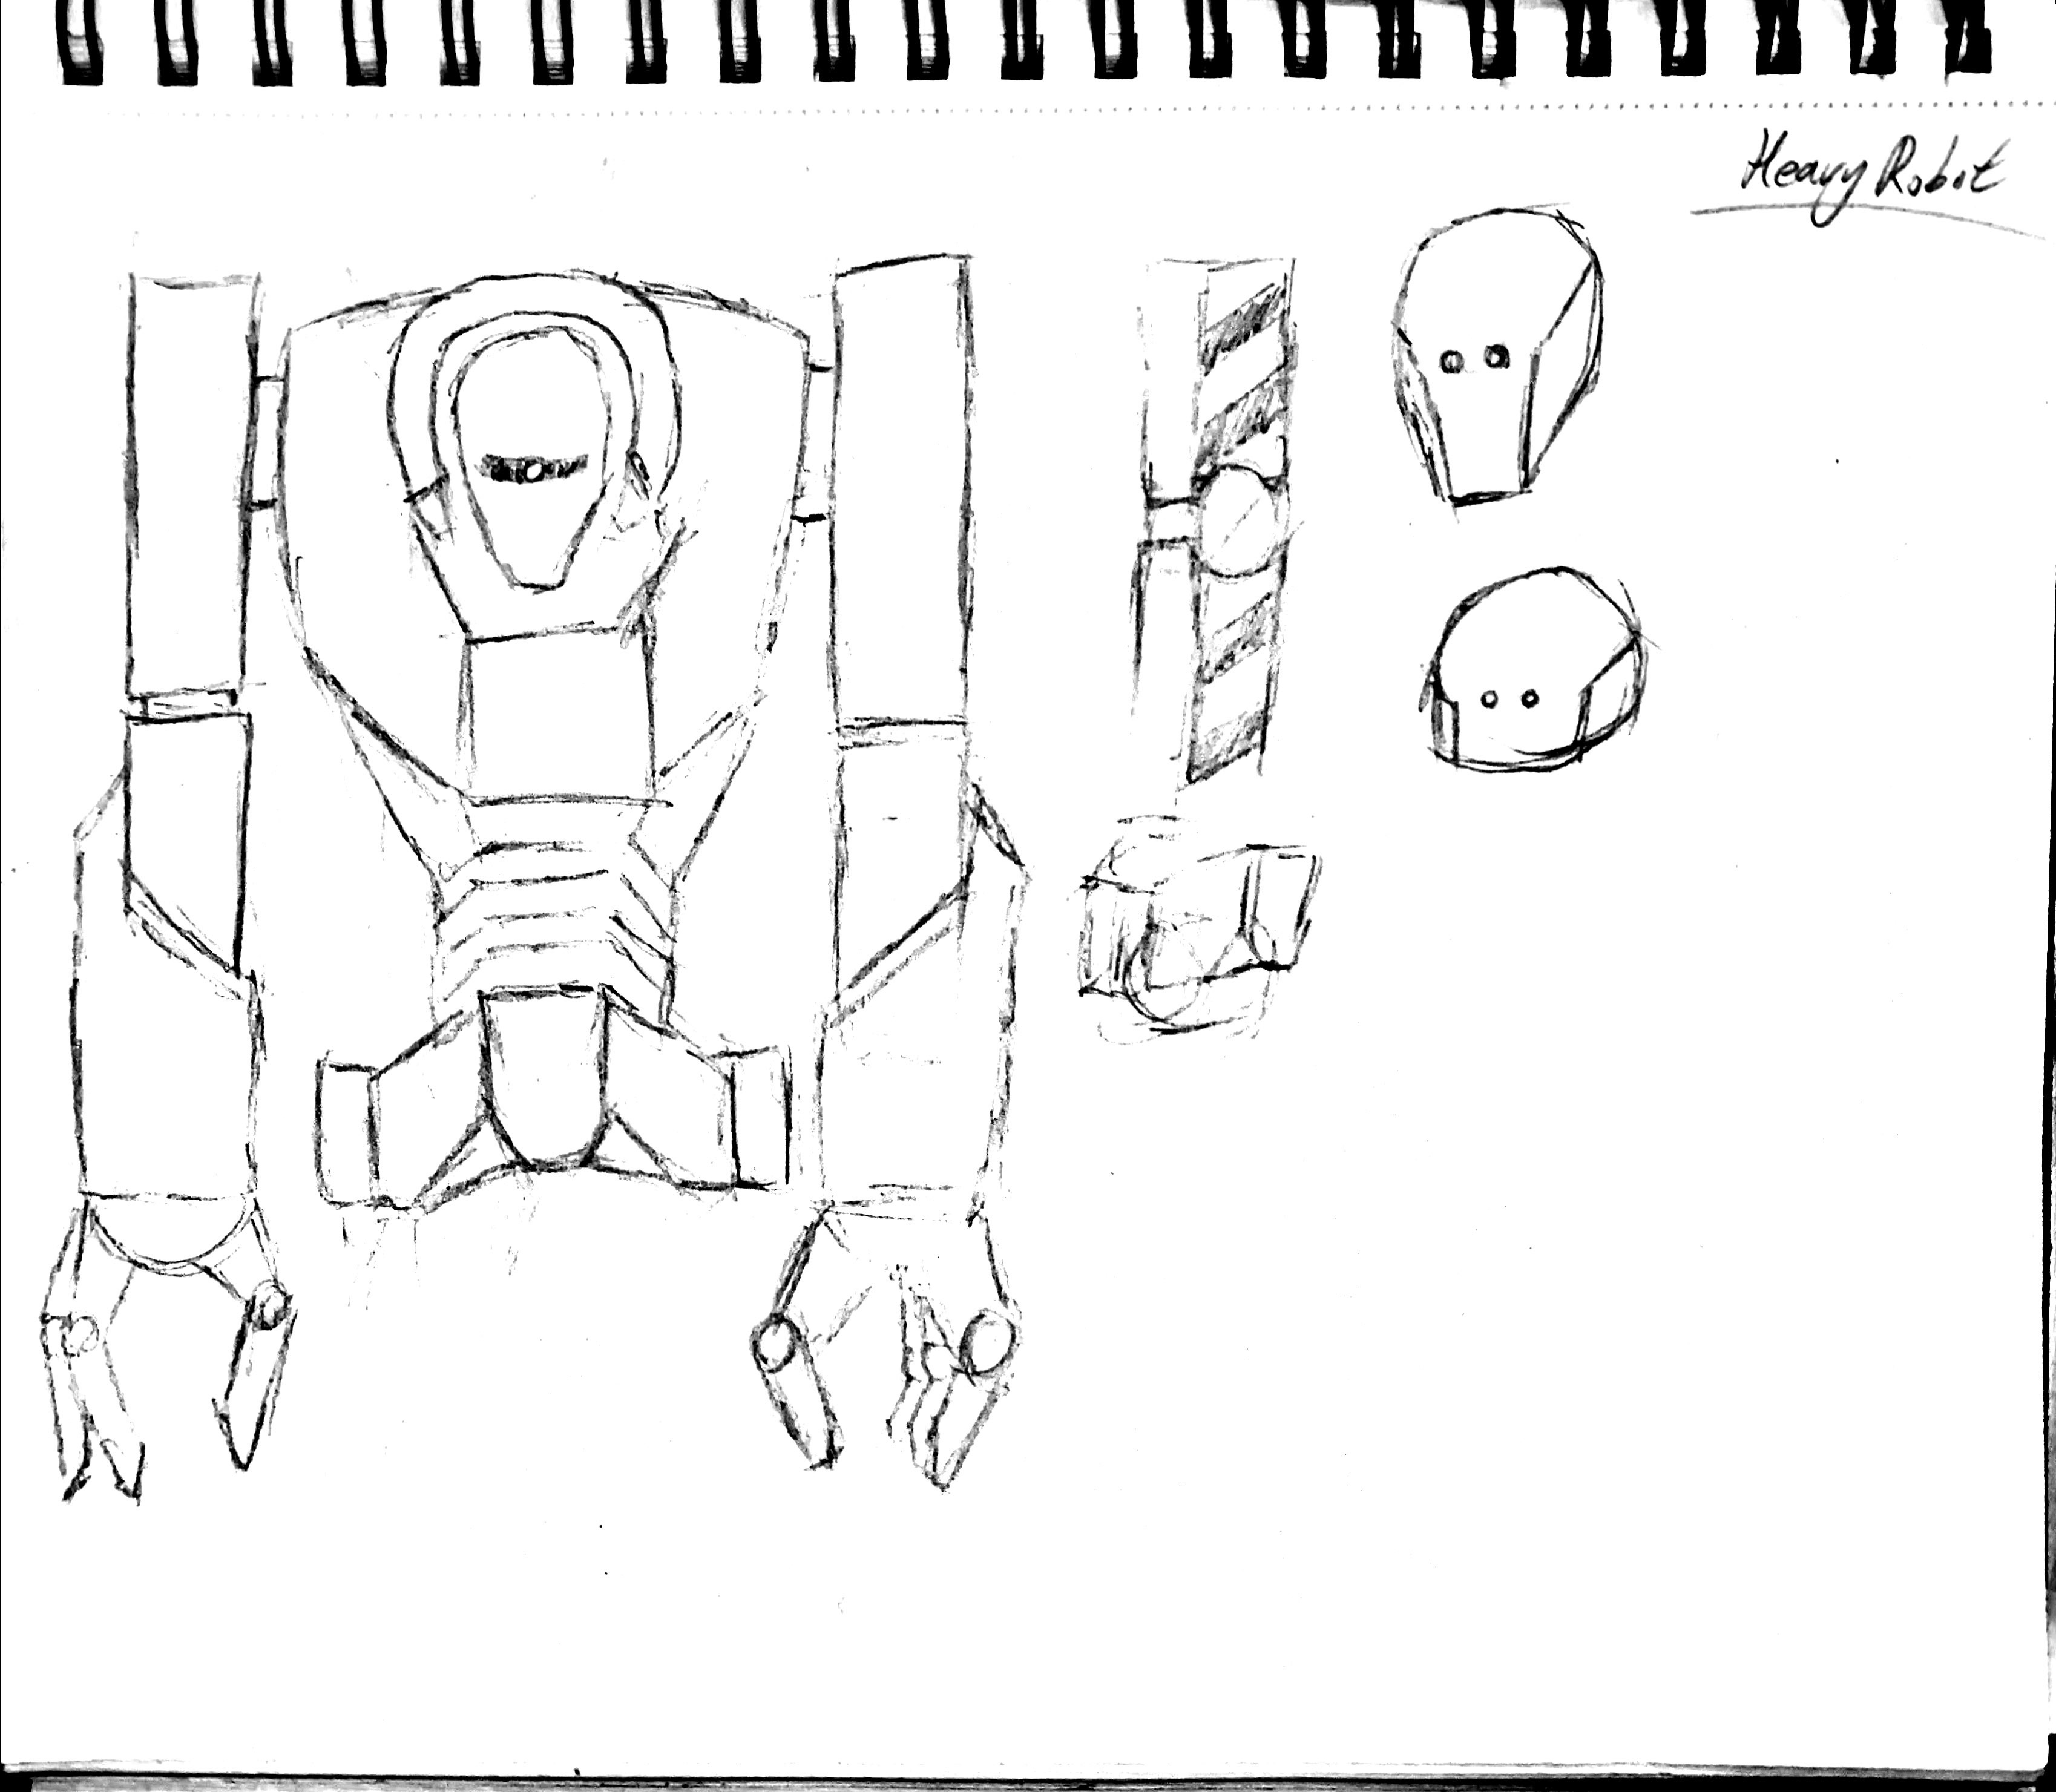 Heavy Robot